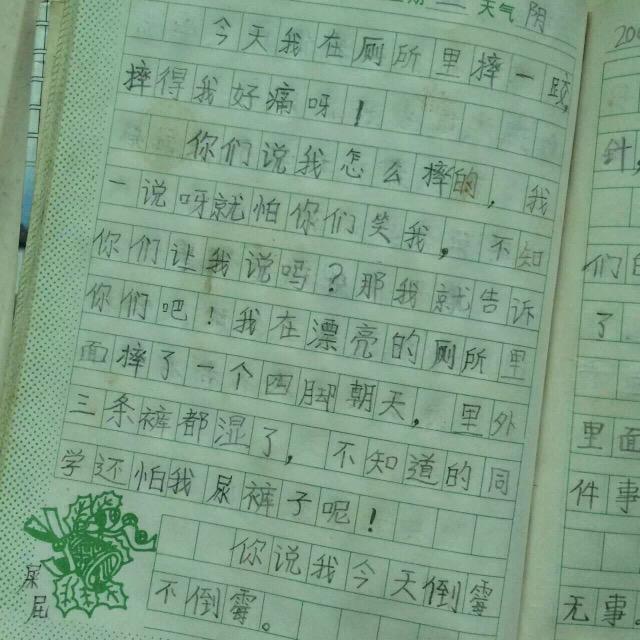 天气 阴
今天我在厕所里摔一跤
摔得我好痛呀！
你们说我怎么摔的，我
一说呀就怕你们笑我，不知
你们让我说吗？那我就告诉
你们吧！我在漂亮的厕所里
面摔了一个四脚朝天，里外
三条裤都湿了，不知道的同
学还怕我尿裤子呢！
你说我今天倒霉
不倒霉。
针
们的
了
里面
件事
无事